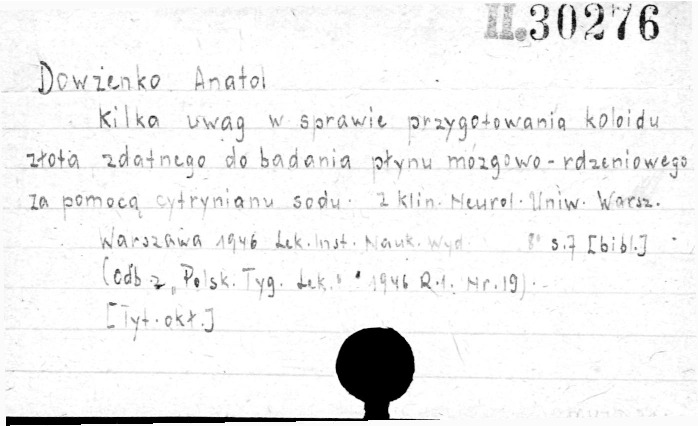 II.30276
Dowżenko Anatol
Kilka uwag w sprawie przygotowania koloidu
złota zdatnego do badania płynu mózgowo-rdzeniowego
za pomocą cytrynianu sodu. Z klin. Neurol. Uniw. Warsz.
Warszawa 1946 Lek. Inst. Nauk. Wyd. 8° s.7 [bibl.]
(Odb. z „Polsk. Tyg. Lek." 1946 R.1. Nr.19).
[Tyt. okł.]